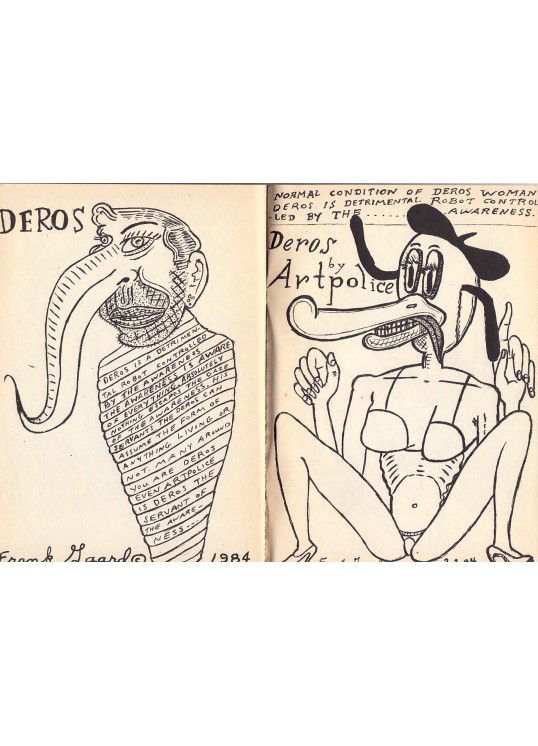 DEROS
DEROS IS A DETRIMEN-
TAL ROBOT CONTROLLED
BY THE AWARENESS
THE AWARENESS IS AWARE
OF EVERYTHING ABSOLUTELY
NOTHING ESCAPES THE GAZE
OF THE AWARENESS. HIS
SERVANTS THE DEROS CAN
ASSUME THE FORM OF
ANYTHING LIVING OR
NOT. MANY AROUND
YOU ARE DEROS
EVEN ARTPOLICE
IS DEROS THE
SERVANT OF
THE AWARE-
NESS...
Frank Gaard © 1984
NORMAL CONDITION OF DEROS WOMAN
DEROS IS DETRIMENTAL ROBOT CONTROL
-LED BY THE ....... AWARENESS.
Deros
by
Artpolice